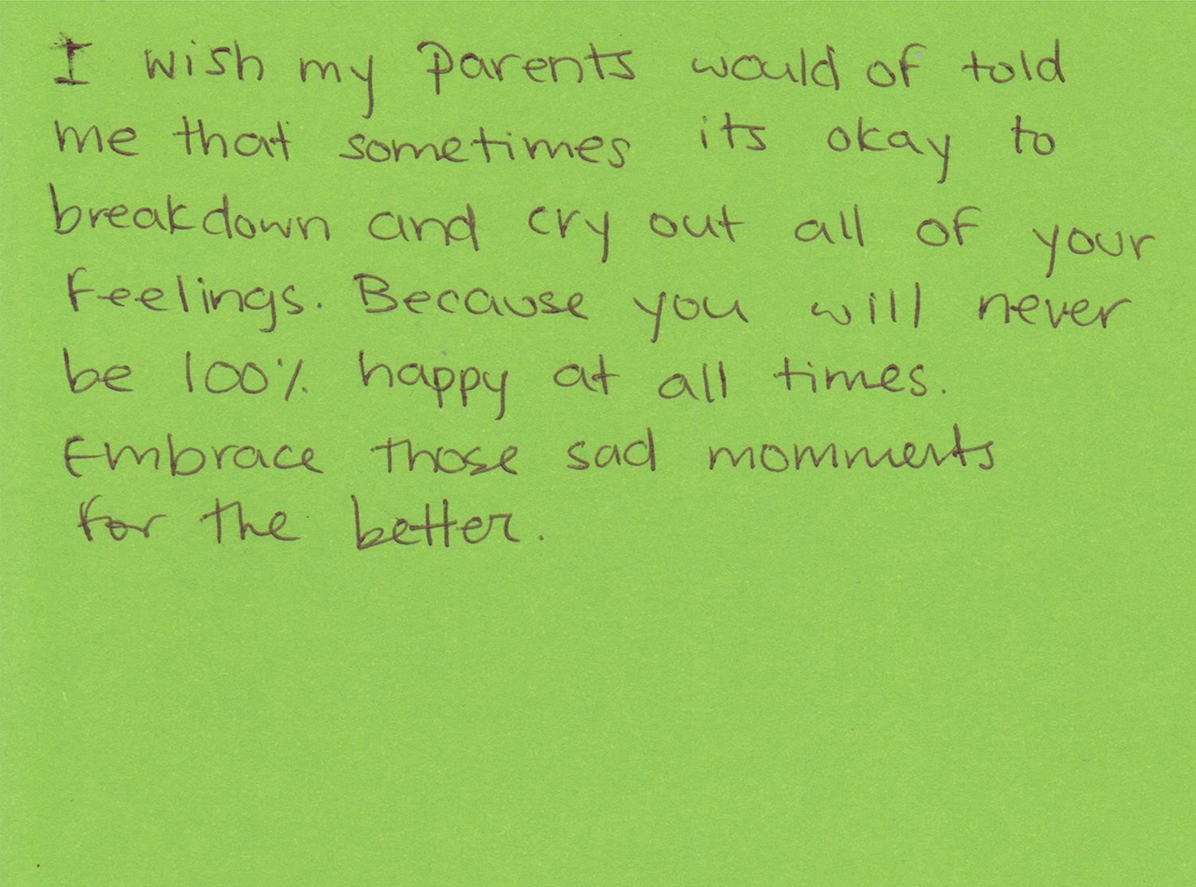 I wish my parents would of told
me that sometimes its okay to
breakdown and cry out all of your
feelings. Because you will never
be 100% happy at all times.
Embrace those sad momments
for the better.